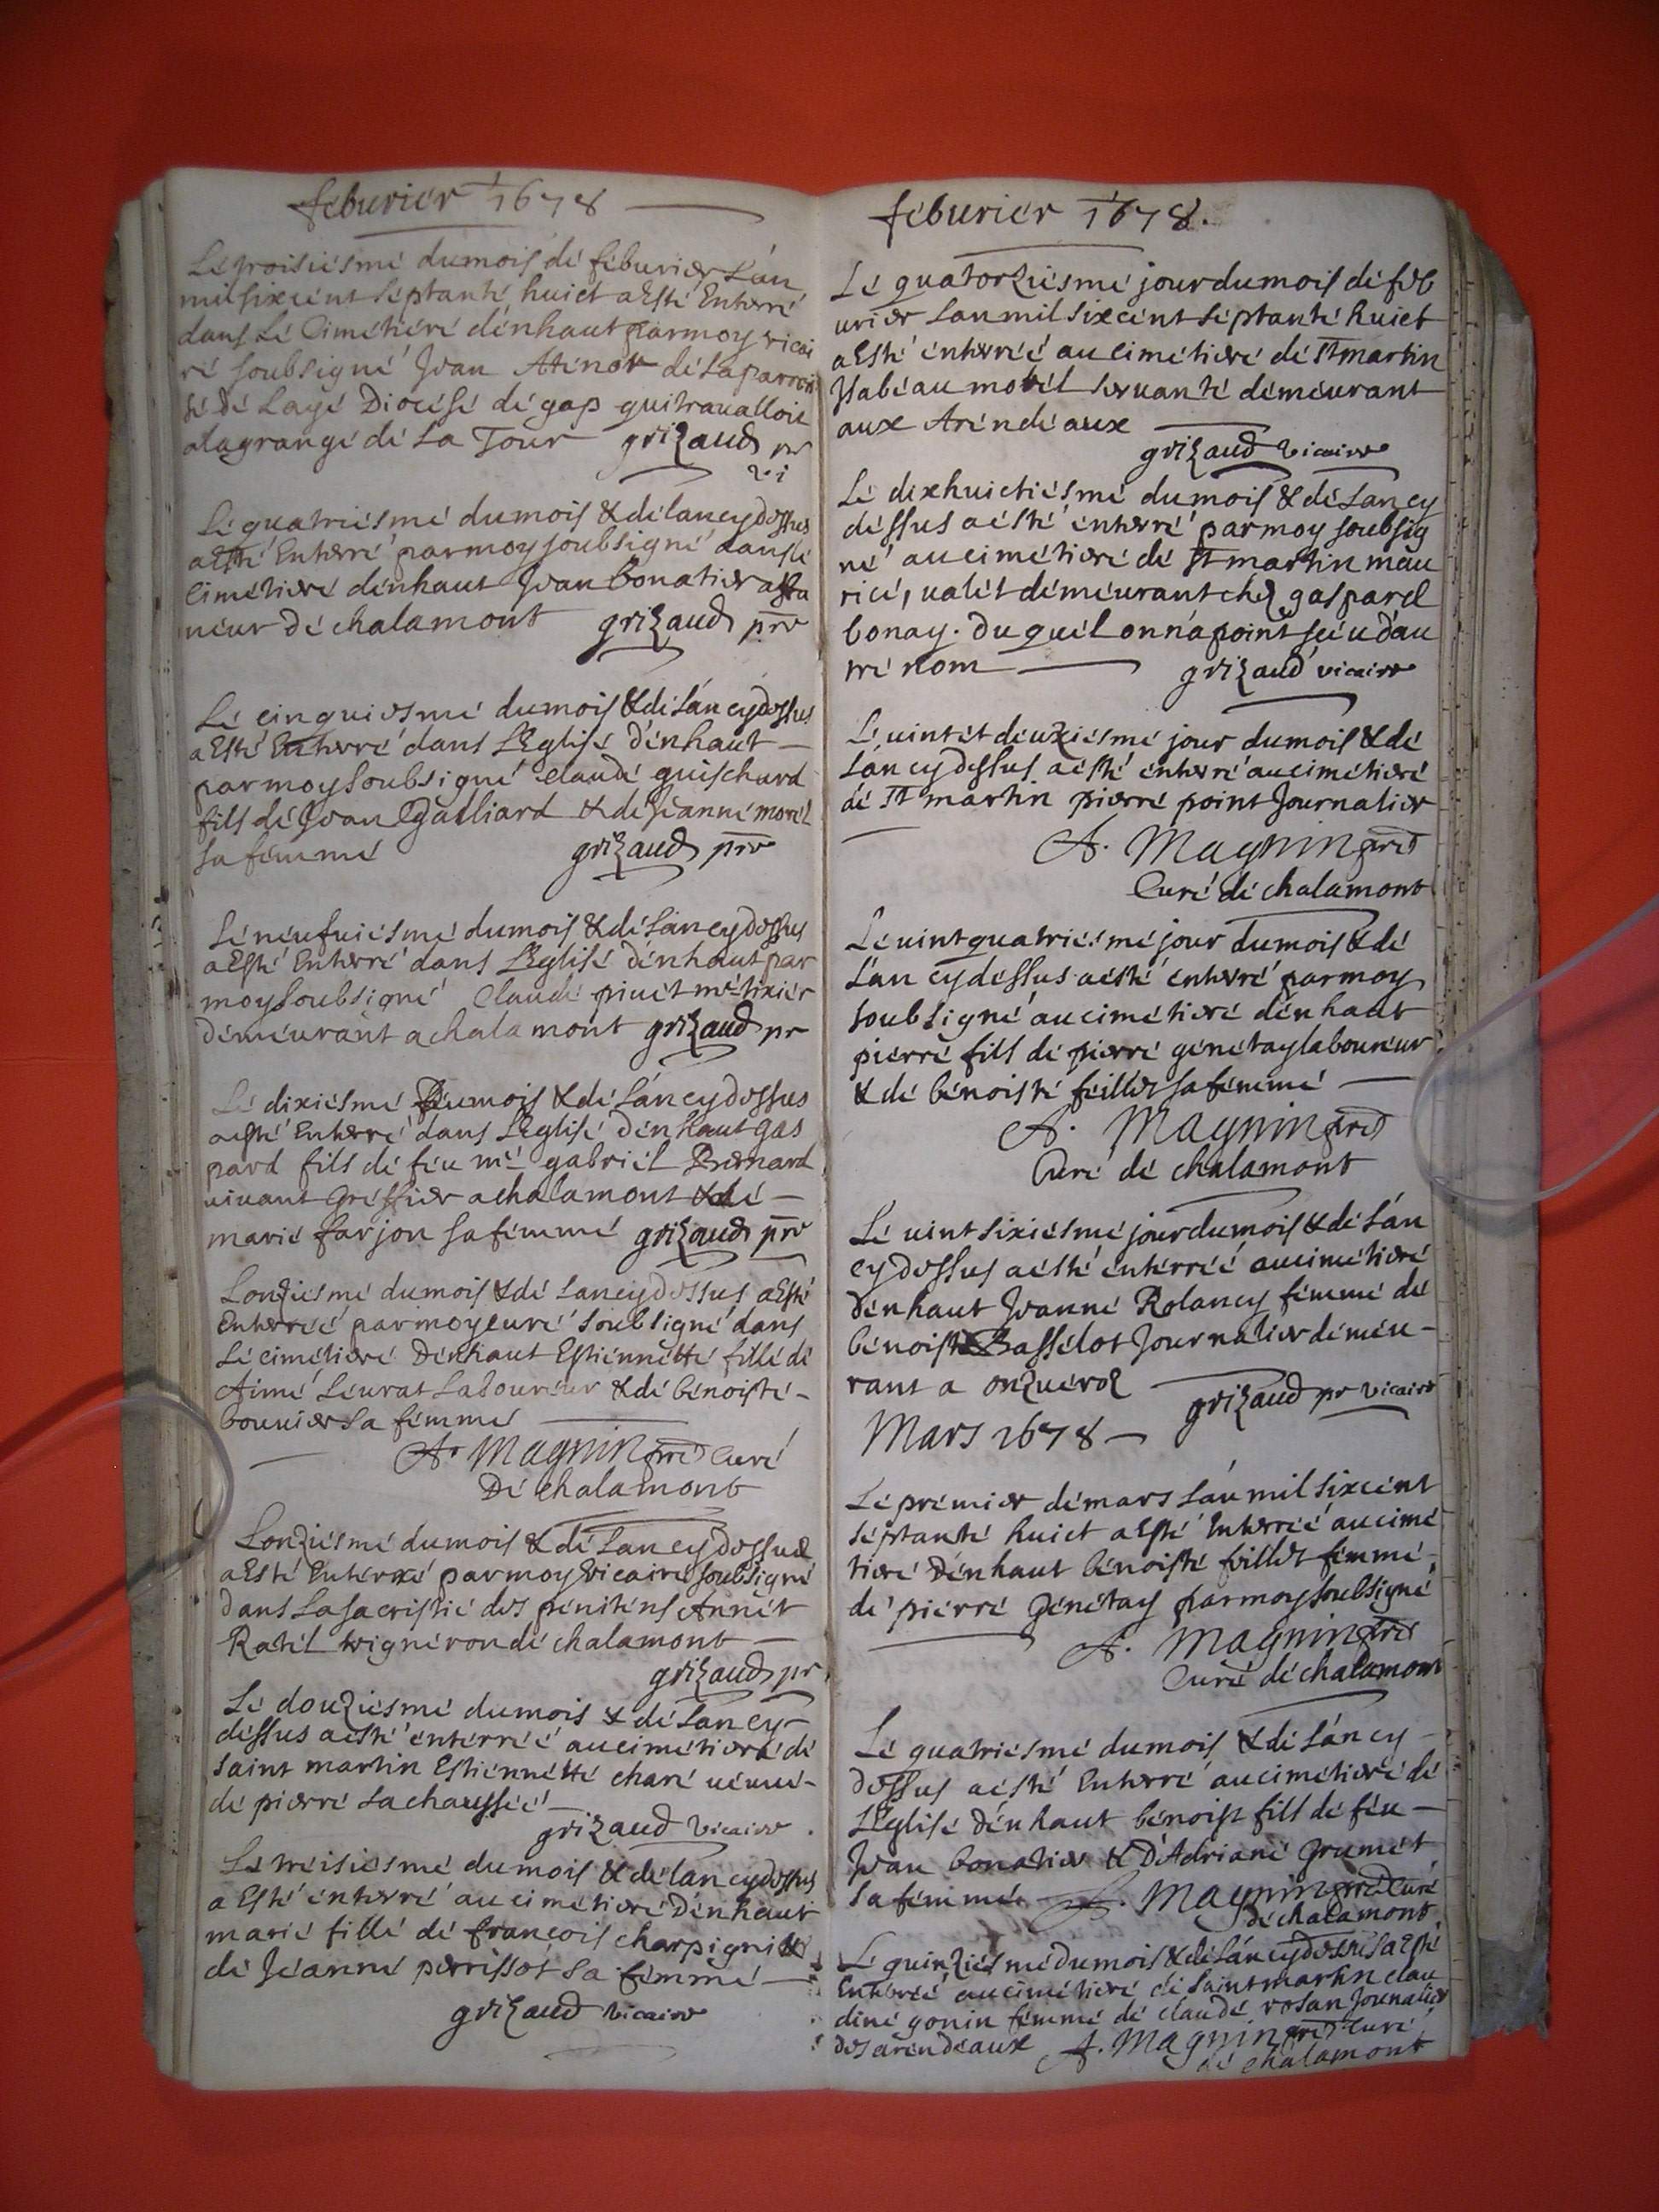 feburier 1678
Le troisiesme du mois de feburier L'an
mil six cent septante huict a esté Enterré
dans Le Cimetiere d'enhaut par moy vicai
re soubsigné Jean Atenor de la parrois
se de Laye Diocese de gap qui travalloit
a la grange de La Tour grizaud pr
vi
Le quatriesme du mois & de lan cy dessus
a Esté Enterré par moy soubsigné dans le
Cimetiere d'enhaut Jean bonatier
neur de chalamont grizaud pre
Le cinquiesme du mois & de L'an cy dessus
a Esté Enterré dans L'Eglise d'enhaut
par moy soubsigné Claude guischard
fils de Jean Galliard & de Jeanne morel
sa femme grizaud pre
Le neufuiesme du mois & de L'an cy dessus
a Esté Enterré dans L'Eglise d'enhaut par
moy soubsigné Claude piuet me tixier
demeurant a chalamont grizaud pr
Le dixiesme Du mois & de L'an cy dessus
a esté Enterré dans L'Eglise d'enhaut gas
pard fils de feu me gabriel Bernard
uiuant Greffier a chalamont & de
marie farjon sa femme grizaud pre
Lonziesme du mois & de Lan cy dessus a Esté
Enterreé par moy curé soubsigné dans
Le cimetiere D'enhaut Estiennette fille de
Aimé Leurat Laboureur & de benoiste
bouuier sa femme
A. Magnin pre Curé
De chalamont
Lonziesme du mois & de Lan cy dessus
a Esté Enterré par moy vicaire soubsigné
dans La sacristie des penitens Annet
Ratel wigneron de chalamont
grizaud pr
Le douziesme du mois & de Lan cy
dessus a esté enterreé au cimetiere de
saint martin Estiennette chare ueuue
de pierre Lachausseé
grizaud vicaire
Le treisiesme du mois & de lan cy dessus
a Esté enterré au cimetiere d'enhaut
marie fille de françois charpigni &
de Jeanne perrissot sa femme
grizaud vicaire
feburier 1678.
Le quatorziesme jour du mois de feb
urier Lan mil six cent septante huict
a Esté enterreé au cimetiere de St martin
Ysabeau morel seruante demeurant
aux Arendeaux
grizaud vicaire
Le dixhuictiesme du mois & de Lan cy
dessus a esté enterré par moy soubsig
né au cimetiere de St martin mau
rice, ualet demeurant chez gaspard
bonay. duquel on n'a point sceu d'au
tre nom grizaud vicaire
Le uint et deuxiesme jour du mois & de
L'an cy dessus a esté enterré au cimetiere
de St martin pierre point Journalier
A. Magnin pre
Curé de chalamont
Le uint quatriesme jour du mois & de
L'an cy dessus a esté enterré par moy
soubsigné au cimetiere d'enhaut
pierre fils de pierre genetay laboureur
& de benoiste feilles sa femme
A. Magnin pre
Curé de chalamont
Le uint sixiesme jour du mois & de L'an
cy dessus a esté enterreé au cimetiere
d'enhaut Jeanne Rolancy femme de
benoist Basselot Journalier demeu-
rant a onzuerol
grizaud pr vicaire
Mars 1678
Le premier de mars L'an mil six cent
septante huict a Esté Enterreé au cime
tiere d'enhaut benoiste feilles femme
de pierre Genetay par moy soubsigné
A. Magnin pre
Curé de chalamont
Le quatriesme du mois & de L'an cy
dessus a esté Enterré au cimetiere de
L'Eglise d'enhaut benoist fils de feu
Jean bonatier & D'Adriane Grumet
sa femme A. Magnin pre Curé
de chalamont
Le quinziesme du mois & de L'an cy dessus a Esté
Enterreé au cimetiere de saint martin clau
dine gonin femme de claude rosan Journalier
des arendeaux A. Magnin pre Curé
de chalamont